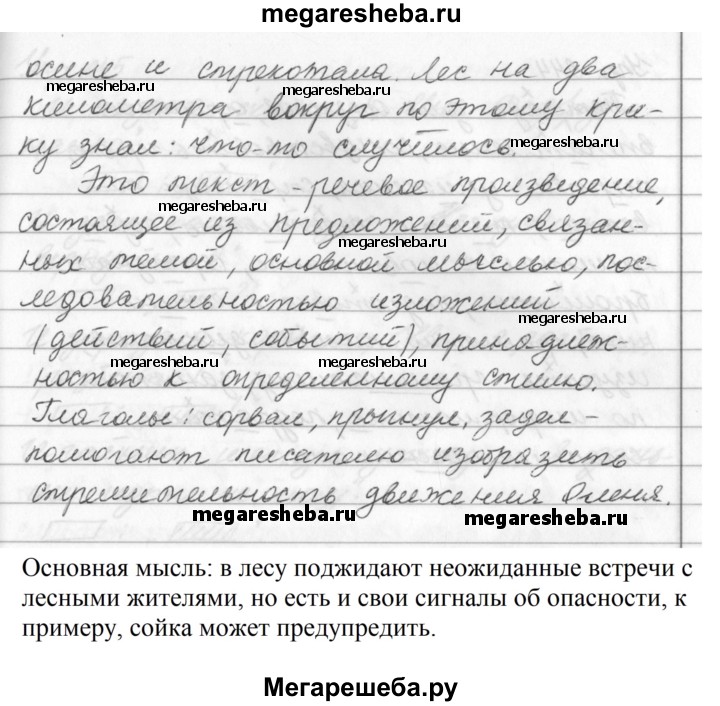 megaresheba.ru
осине и стрекотала. Лес на два
megaresheba.ru
megaresheba.ru
километра вокруг по этому кри-
ку знал: что-то случилось.
megaresheba.ru
Это текст - речевое произведение,
megaresheba.ru
состоящее из предложений, связан-
megaresheba.ru
ных темой, основной мыслью, пос-
ледовательностью изложений
megaresheba.ru
(действий, событий), принадлеж-
megaresheba.ru
megaresheba.ru
ностью к определенному стилю.
Глаголы: сорвал, прыгнул, задел -
помогают писателю изобразить
стремительность движения Оленя.
megaresheba.ru
megaresheba.ru
Основная мысль: в лесу поджидают неожиданные встречи с
лесными жителями, но есть и свои сигналы об опасности, к
примеру, сойка может предупредить.
Мегарешеба.ру